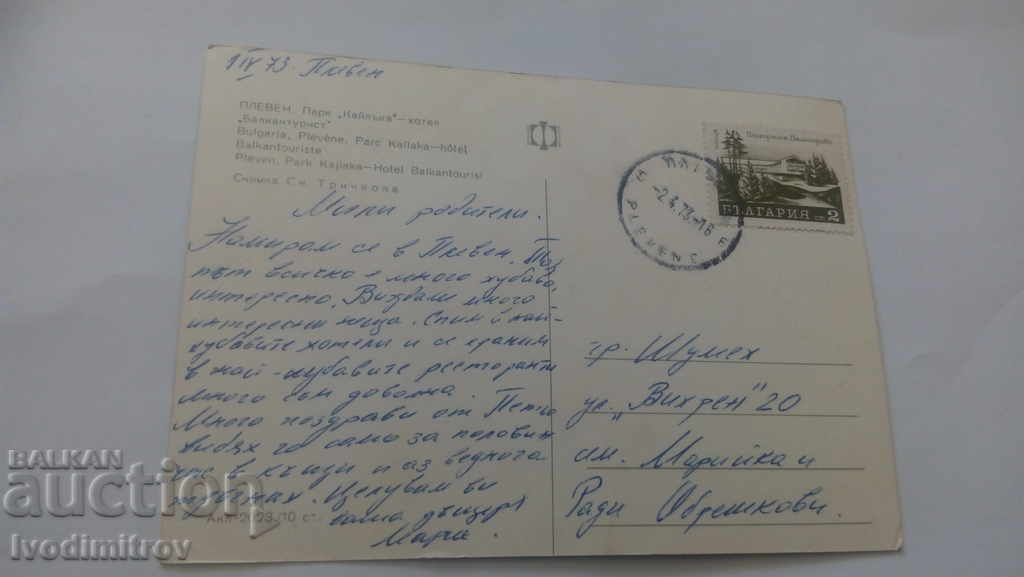 1 IV 73 Плевен
ПЛЕВЕН. Парк „Кайлъка"—хотел
„Балкантурист"
Bulgaria, Plevène, Parc Kailaka—hôtel
Balkantouriste
Pleven, Park Kajlaka—Hotel Balkantourist
Снимка Сн. Тричкова
Мили родители.
Намирам се в Плевен.
път всичко е много хубаво,
интересно. Виждали много
интересни неща. Спим в най-
хубавите хотели и се храним
в най-хубавите ресторанти
много съм доволна.
Много поздрави от Петьо
видях го само за половин
час в къщи и аз веднага
Целувам ви
ваша дъщеря
Мара.
Акл-2023 10 ст.
БЪЛГАРИЯ ст. 2
2.4.73-16
PLEVEN
гр. Шумен
ул. „Вихрен" 20
сем. Марийка и
Ради Обрешкови.
BALKAN
auction
Ivodimitrov